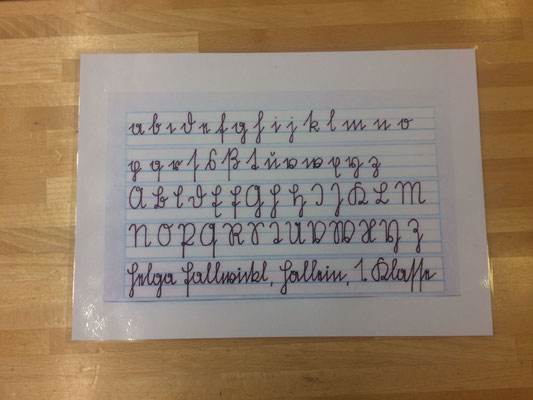 a b c d e f g h i j k l m n o
p q r ſ s ß t u v w x y z
A B C D E F G H I J K L M
N O P Q R S T U V W X Y Z
Helga Fallwickl, Hallein, 1. Klaſſe